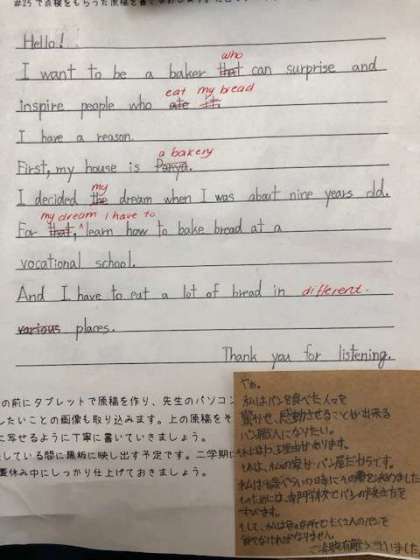 #25で点検をもらった原稿を書
Hello!
who
I want to be a baker that can surprise and
eat my bread
inspire people who ate it.
I have a reason.
a bakery
First, my house is Panya.
my
I decided the dream when I was about nine years old.
my dream I have to
For that, learn how to bake bread at a
vocational school.
And I have to eat a lot of bread in different
various places.
Thank you for listening.
の前にタブレットで原稿を作り、先生のパソコン
したいことの画像も取り込みます。上の原稿をそ
に写せるように丁寧に書いていきましょう。
している間に黒板に映し出す予定です。二学期に
夏休み中にしっかり仕上げておきましょう。
やあ。
私はパンを食べた人々を
驚かせ、感動させることが出来る
パン職人になりたい。
理由があります。
それは、私の家がパン屋だからです。
私は9歳ぐらいの時にその夢を決めました
そのためには、専門学校でパンの作り方を
そして、私は
たくさんのパンを
食べなければなりません。
ご清聴有難うございました